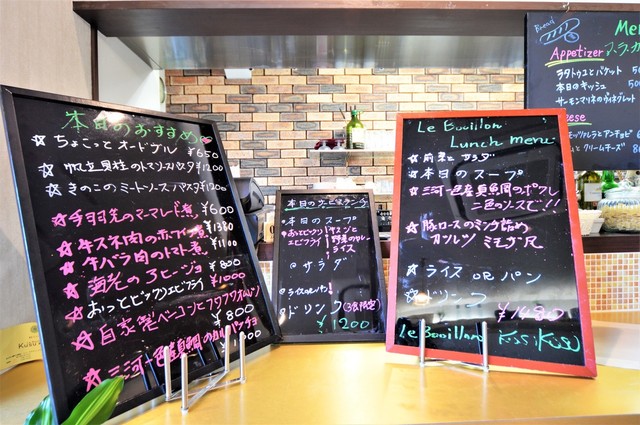 本日のおすすめ
☆ちょこっとオードブル ¥650
☆帆立貝柱のトマソースパスタ ¥1200
☆きのこのミートソースパスタ ¥1200
☆手羽先のマーマレード煮 ¥600
☆牛スネ肉の赤ワイン煮 ¥1380
☆牛バラ肉のトマト煮 ¥1100
¥800
☆おっとビックリエビフライ ¥1000
☆自家製ベーコンとフワフワオムレツ
¥800
☆三河一色産真鯛の
本日の
・本日のスープ
・おっとビックリエビフライ
野菜のカレー
ライス
サラダ
ライスorパン
・ドリンク
¥1200
Le Bouillon
Lunch menu
☆前菜とサラダ
☆本日のスープ
☆三河一色産真鯛のポワレ
二色のソースで!!
☆豚ロースのミンチ詰め
カツレツ ミモザ風
☆ライス orパン
☆ドリンク
¥1480
Le Bouillon KissiKissi
Bread
Menu
Appetizer
ラタトゥユとバケット
本日のキッシュ
サーモンマリネのヴィネグレット